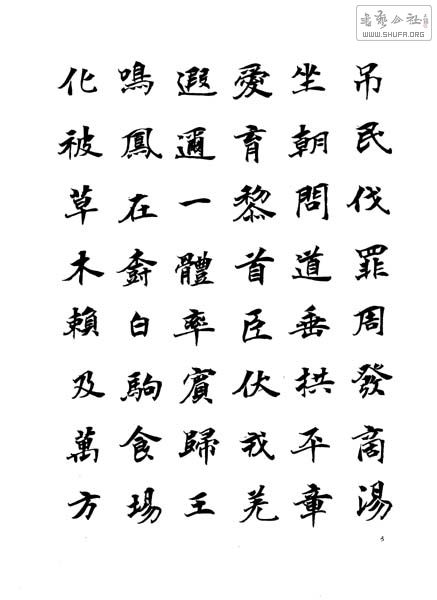 书艺公社
WWW.SHUFA.ORG
吊民伐罪周發商湯
坐朝問道垂拱平章
愛育黎首臣伏戎羌
遐邇一體率賓歸王
鳴鳳在樹白駒食場
化被草木賴及萬方